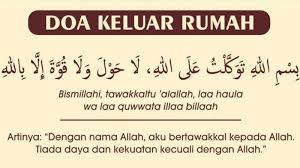 DOA KELUAR RUMAH
بِسْمِ اللهِ تَوَكَّلْتُ عَلَى اللهِ، لَا حَوْلَ وَلَا قُوَّةَ إِلَّا بِاللهِ
Bismillahi, tawakkaltu 'alallah, laa haula
wa laa quwwata illaa billaah
Artinya: “Dengan nama Allah, aku bertawakkal kepada Allah.
Tiada daya dan kekuatan kecuali dengan Allah.”